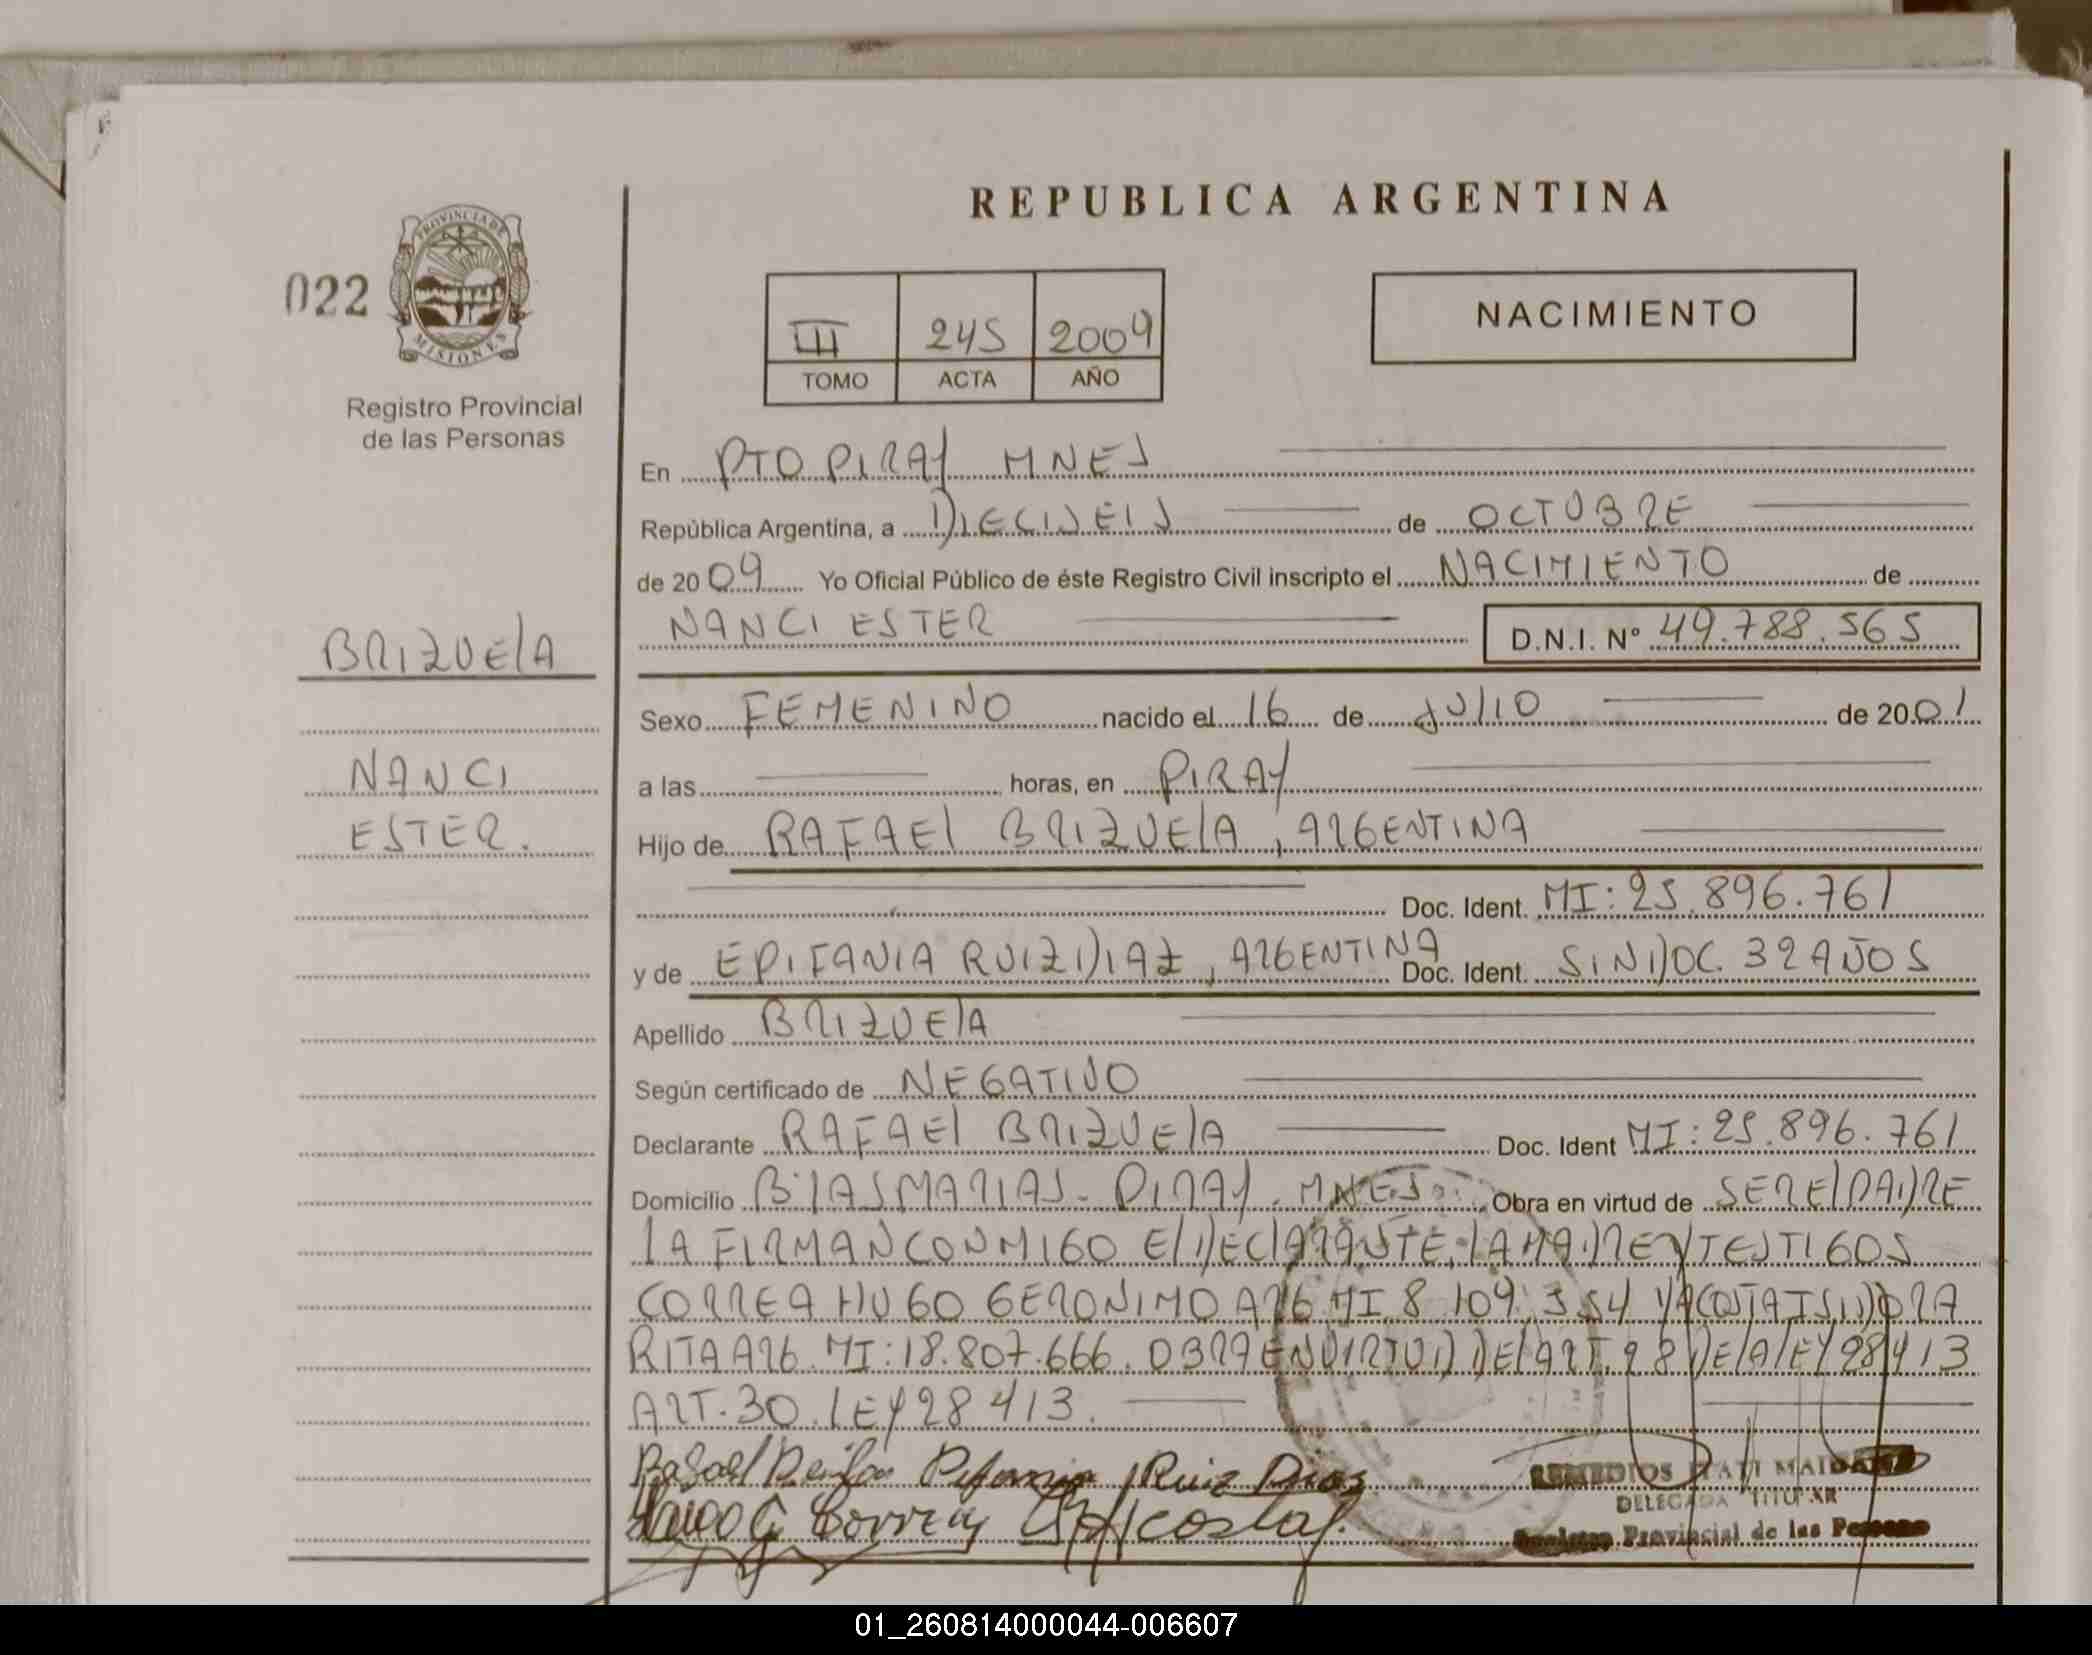 REPUBLICA ARGENTINA
022
PROVINCIA DE MISIONES
Registro Provincial
de las Personas
III 245 2009
TOMO ACTA AÑO
NACIMIENTO
En PTO PIRAY MNES
República Argentina, a DIECISEIS de OCTUBRE
de 2009 Yo Oficial Público de éste Registro Civil inscripto el NACIMIENTO de
NANCI ESTER D.N.I. Nº 49.788.565
BRIZUELA
NANCI
ESTER.
Sexo FEMENINO nacido el 16 de JULIO de 2001
a las horas, en PIRAY
Hijo de RAFAEL BRIZUELA, ARGENTINA
Doc. Ident. MI: 25.896.761
y de EPIFANIA RUIZ DIAZ, ARGENTINA Doc. Ident. SIN DOC. 32 AÑOS
Apellido BRIZUELA
Según certificado de NEGATIVO
Declarante RAFAEL BRIZUELA Doc. Ident MI: 25.896.761
Domicilio Bº LAS MARIAS - PIRAY - MNES Obra en virtud de SER EL PADRE
LA FIRMAN CONMIGO EL DECLARANTE, LA MADRE Y TESTIGOS
CORREA HUGO GERONIMO ARG MI 8.109.354 Y ACOSTA ISIDORA
RITA ARG. MI: 18.807.666. OBRA EN VIRTUD DEL ART. 28 DE LA LEY 28413
ART. 30. LEY 28413.
Rafael Ruiz Dias
Hugo G Correa Acosta
REMEDIOS MAIDANA
DELEGADA TITULAR
Provincial de las Personas
01_260814000044-006607